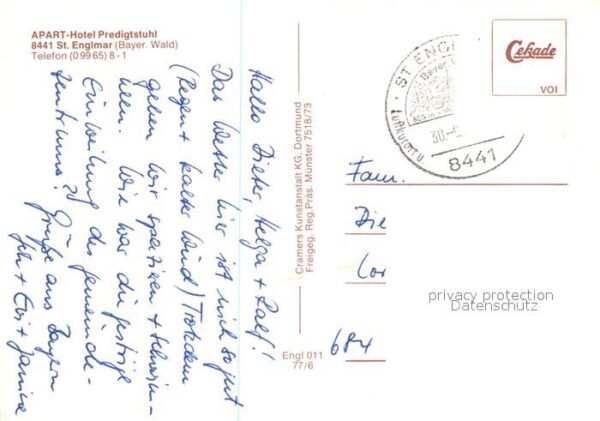 APART-Hotel Predigtstuhl
8441 St. Englmar (Bayer. Wald)
Telefon (09965) 8-1
Hallo Dieter, Helga + Ralf!
Das Wetter hier ist nich so gut
(Regen + kalter Wind) Trotzdem
gehen wir spazieren + schwim-
men. Wie war die gestrige
Einweihung des Gemeinde-
zentrums?
Grüße aus Bayern
+ Evi + Janine
Cramers Kunstanstalt KG, Dortmund
Freigeg. Reg. Präs. Münster 7518/73
Engl 011
77/6
Cekade
VOI
ST ENG
Bayer
805 m
Luftkurort u.
30.-
8441
Fam.
Die
Lor
684
privacy protection
Datenschutz